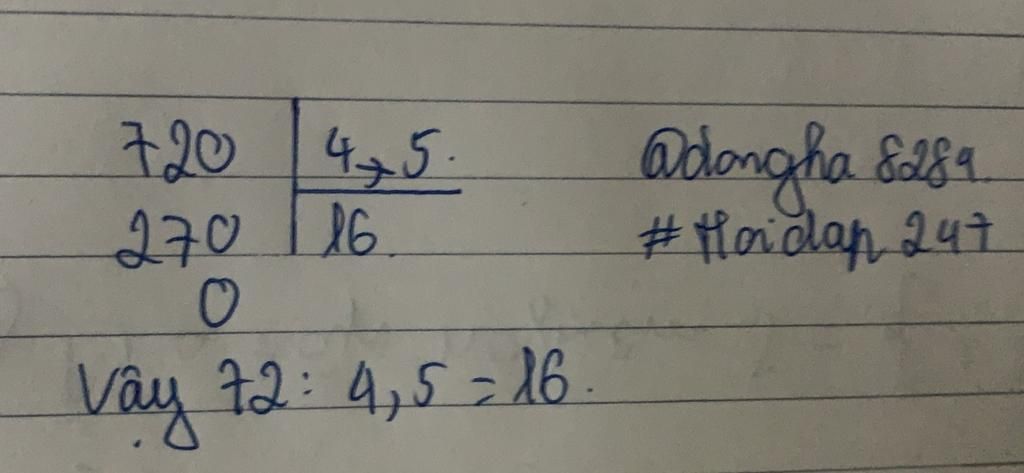 720 4,5. @dongha 8289.
270 16. #Hoidap 247
0
Vậy 72 : 4,5 = 16.